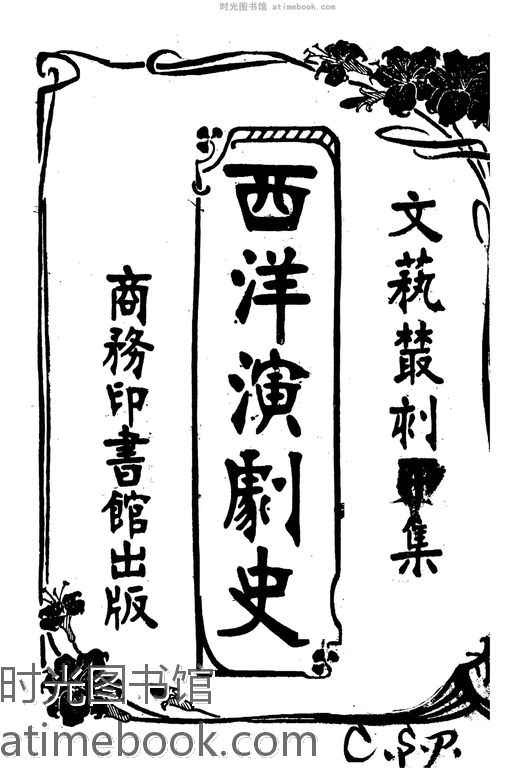 时光图书馆 atimebook.com
文藝叢刻甲集
西洋演劇史
商務印書館出版
时光图书馆
atimebook.com
C.S.P.